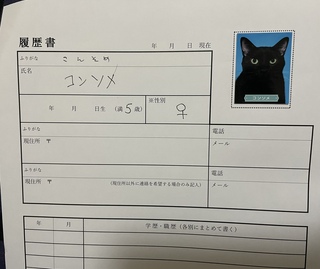 履歴書 年 月 日 現在
ふりがな こんそめ
氏名
コンソメ
年 月 日生 (満 5 歳) ※性別 ♀
ふりがな 電話
現住所 〒 メール
ふりがな 電話
現住所 〒 (現住所以外に連絡を希望する場合のみ記入) メール
年 月 学歴・職歴 (各別にまとめて書く)